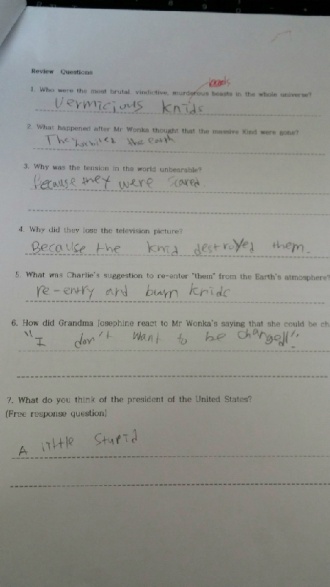 Review Questions
1. Who were the most brutal, vindictive, murderous beasts in the whole universe?
Vermicious knids
2. What happened after Mr Wonka thought that the massive Knid were gone?
The the earth
3. Why was the tension in the world unbearable?
Because they were scared
4. Why did they lose the television picture?
Because the knid destroyed them.
5. What was Charlie's suggestion to re-enter "them" from the Earth's atmosphere?
re-entry and burn knids
6. How did Grandma Josephine react to Mr Wonka's saying that she could be ch
"I don't want to be changed!"
7. What do you think of the president of the United States?
(Free response question)
A little stupid